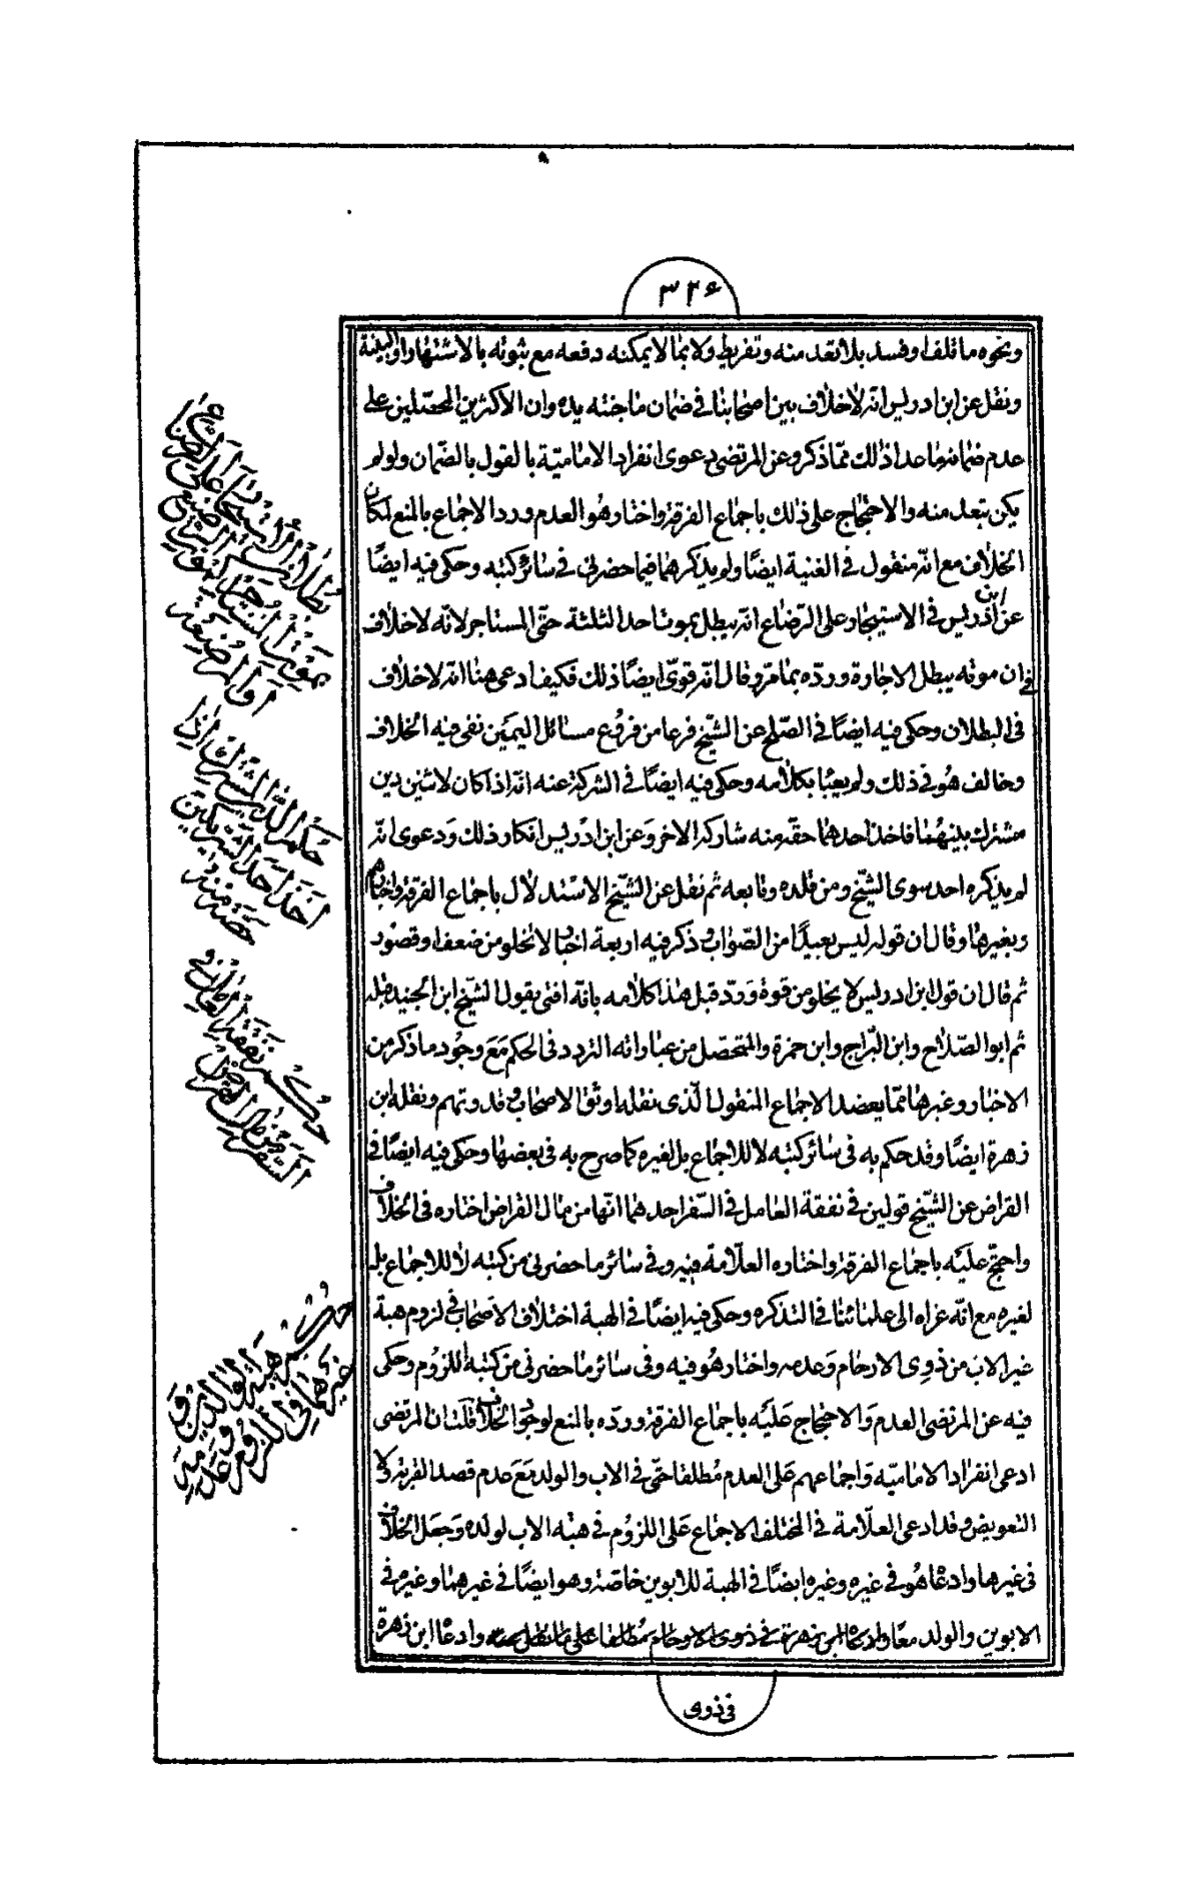 ٣٢۶
ونحوه ما تلف او فسد بلا تعد منه وتفريط ولا بما لا يمكنه دفعه مع ثبوته بالاشتهار او البينة
ونقل عن ابن ادريس انه لا خلاف بين اصحابنا في ضمان ما جنته يده وان الاكثرين المحصلين على
عدم ضمانه ما عدا ذلك مما ذكر وعن المرتضى دعوى انفراد الامامية بالقول بالضمان ولو لم
يكن بتعد منه والاحتجاج على ذلك باجماع الفرقة واختار هو العدم ورد الاجماع بالمنع لمكان
الخلاف مع انه منقول في الغنية ايضًا ولم يذكرهما فيما حضرني في سائر كتبه وحكى فيه ايضًا
عن ابن ادريس في الاستيجار على الرضاع انه يبطل بموت احد الثلثة حتى المستاجر لانه لا خلاف
في ان موته يبطل الاجارة ورده بما مر وقال انه قوى ايضًا ذلك فكيف ادعى هنا انه لا خلاف
في البطلان وحكى فيه ايضًا في الصلح عن الشيخ فرعا من فروع مسائل اليمين نفى فيه الخلاف
وخالف هو في ذلك ولم يعبأ بكلامه وحكى فيه ايضًا في الشركة عنه انه اذا كان لاثنين دين
مشترك بينهما فاخذ احدهما حقه منه شاركه الاخر وعن ابن ادريس انكار ذلك ودعوى انه
لم يذكره احد سوى الشيخ ومن قلده وتابعه ثم نقل عن الشيخ الاستدلال باجماع الفرقة واخبارهم
وبغيرهما وقال ان قوله ليس بعيدًا من الصواب وذكر فيه اربعة اخبار لا تخلو من ضعف او قصور
ثم قال ان قول ابن ادريس لا يخلو من قوة ورد قبل هذا كلامه بانه افتى بقول الشيخ ابن الجنيد قبله
ثم ابو الصلاح وابن البراج وابن حمزة والمتحصل من عباراته التردد في الحكم مع وجود ما ذكر من
الاخبار وغيرها مما يعضد الاجماع المنقول الذى نقله اوثق الاصحاب وقدوتهم ونقله ابن
زهرة ايضًا وقد حكم به في سائر كتبه لا للاجماع بل لغيره كما صرح به في بعضها وحكى فيه ايضًا في
القراض عن الشيخ قولين في نفقة العامل في السفر احدهما انها من مال القراض اختاره في الخلاف
واحتج عليه باجماع الفرقة واختاره العلامة فيه وفي سائر ما حضرني من كتبه لا للاجماع بل
لغيره مع انه عزاه الى علمائنا في التذكره وحكى فيه ايضًا في الهبة اختلاف الاصحاب في لزوم هبة
غير الاب من ذوى الارحام وعدمه واختار هو فيه وفي سائر ما حضرني من كتبه اللزوم وحكى
فيه عن المرتضى العدم والاحتجاج عليه باجماع الفرقة ورده بالمنع لوجود الخلاف قلت ان المرتضى
ادعى انفراد الامامية واجماعهم على العدم مطلقا حتى في الاب والولد مع عدم قصد القربة ولا
التعويض وقد ادعى العلامة في المختلف الاجماع على اللزوم في هبة الاب لولده وجعل الخلاف
في غيرها وادعاه هو في غيره وغيره ايضًا في الهبة للابوين خاصة وهو ايضًا في غيرهما وغيره في
الابوين والولد معا وادعاه ابن زهرة في ذوى الارحام مطلقا على ما نقل عنه وادعاه ابن زهرة
في ذوى
بطلان الاستيجار على الرضاع
بموت
او المرضعة
حكم الدين المشترك اذا
اخذ احد الشريكين
حصته منه
حكم نفقة العامل في
السفر من مال القراض
حكم هبة الوالدين و
غيرهما في اللزوم وعدمه